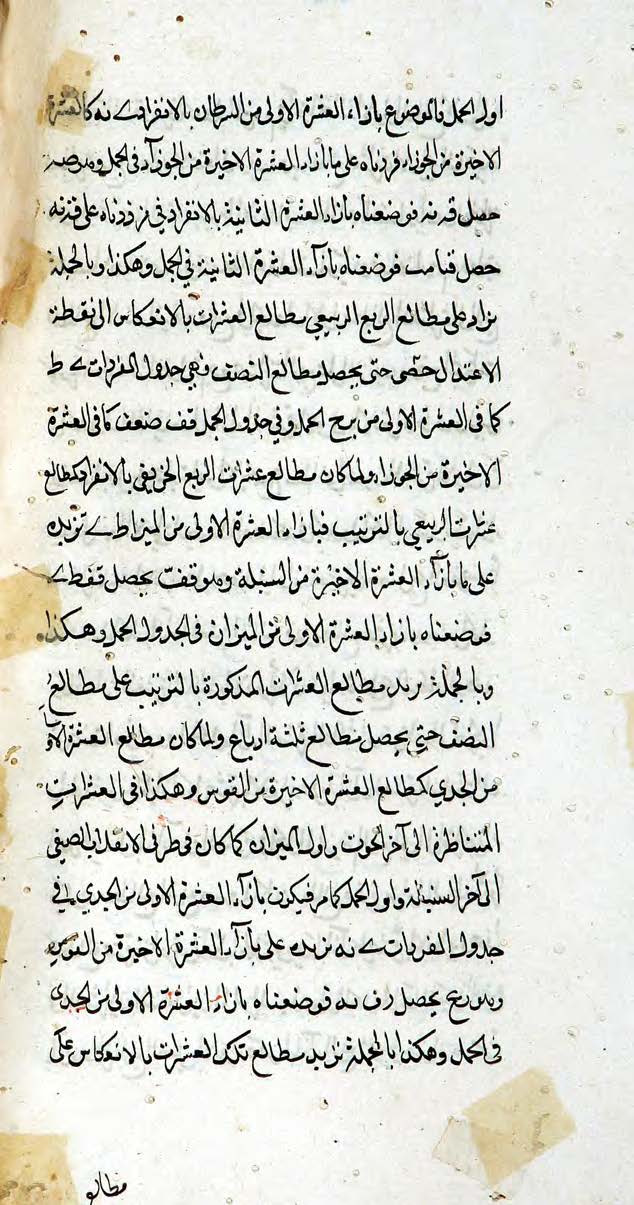 اول الحمل فالموضوع بازاء العشرة الاولى من السرطان بالانفراد ے نه كالعشرة
الاخيرة من الجوزاء فزدناه على ما بازاء العشرة الاخيرة من الجوزآء فى الجمل وهو صه
حصل قه نه فوضعناه بازاء العشرة الثانية بالانفراد زدناه على قه نه
حصل فوضعناه بازآء العشرة الثانية فى الجمل وهكذا وبالجملة
نزاد على مطالع الربع الربيعي مطالع العشرات بالانعكاس الى نقطة
الاعتدال حتى يحصل مطالع النصف ففى جدول المفردات ے ط
كما فى العشرة الاولى من برج الحمل وفى جدول الجمل قف ضعف كما فى العشرة
الاخيرة من الجوزاء ولما كان مطالع عشرات الربع الخريفى بالانفراد كمطالع
عشرات الربيعي بالترتيب فبازاء العشرة الاولى من الميزان ط ے نزيده
على ما بازآء العشرة الاخيرة من السنبلة وهو قف يحصل قفط ے
فوضعناه بازاء العشرة الاولى من الميزان فى الجدول الجمل وهكذا
وبالجملة نزيد مطالع العشرات المذكورة بالترتيب على مطالع
النصف حتى يحصل مطالع ثلثة ارباع ولما كان مطالع العشرة الاولى
من الجدي كمطالع العشرة الاخيرة من القوس وهكذا فى العشرات
المتناظرة الى آخر الحوت واول الميزان كما كان فى طرفى الانقلاب الصيفى
الى آخر السنبلة واول الحمل كما مر فيكون بازآء العشرة الاولى من الجدي فى
جدول المفردات ے نه نزيده على بازآء العشرة الاخيرة من القوس
وهو رع يحصل رف نه فوضعناه بازاء العشرة الاولى من الجدى
فى الجمل وهكذا بالجملة نزيد مطالع تلك العشرات بالانعكاس على
مطالع